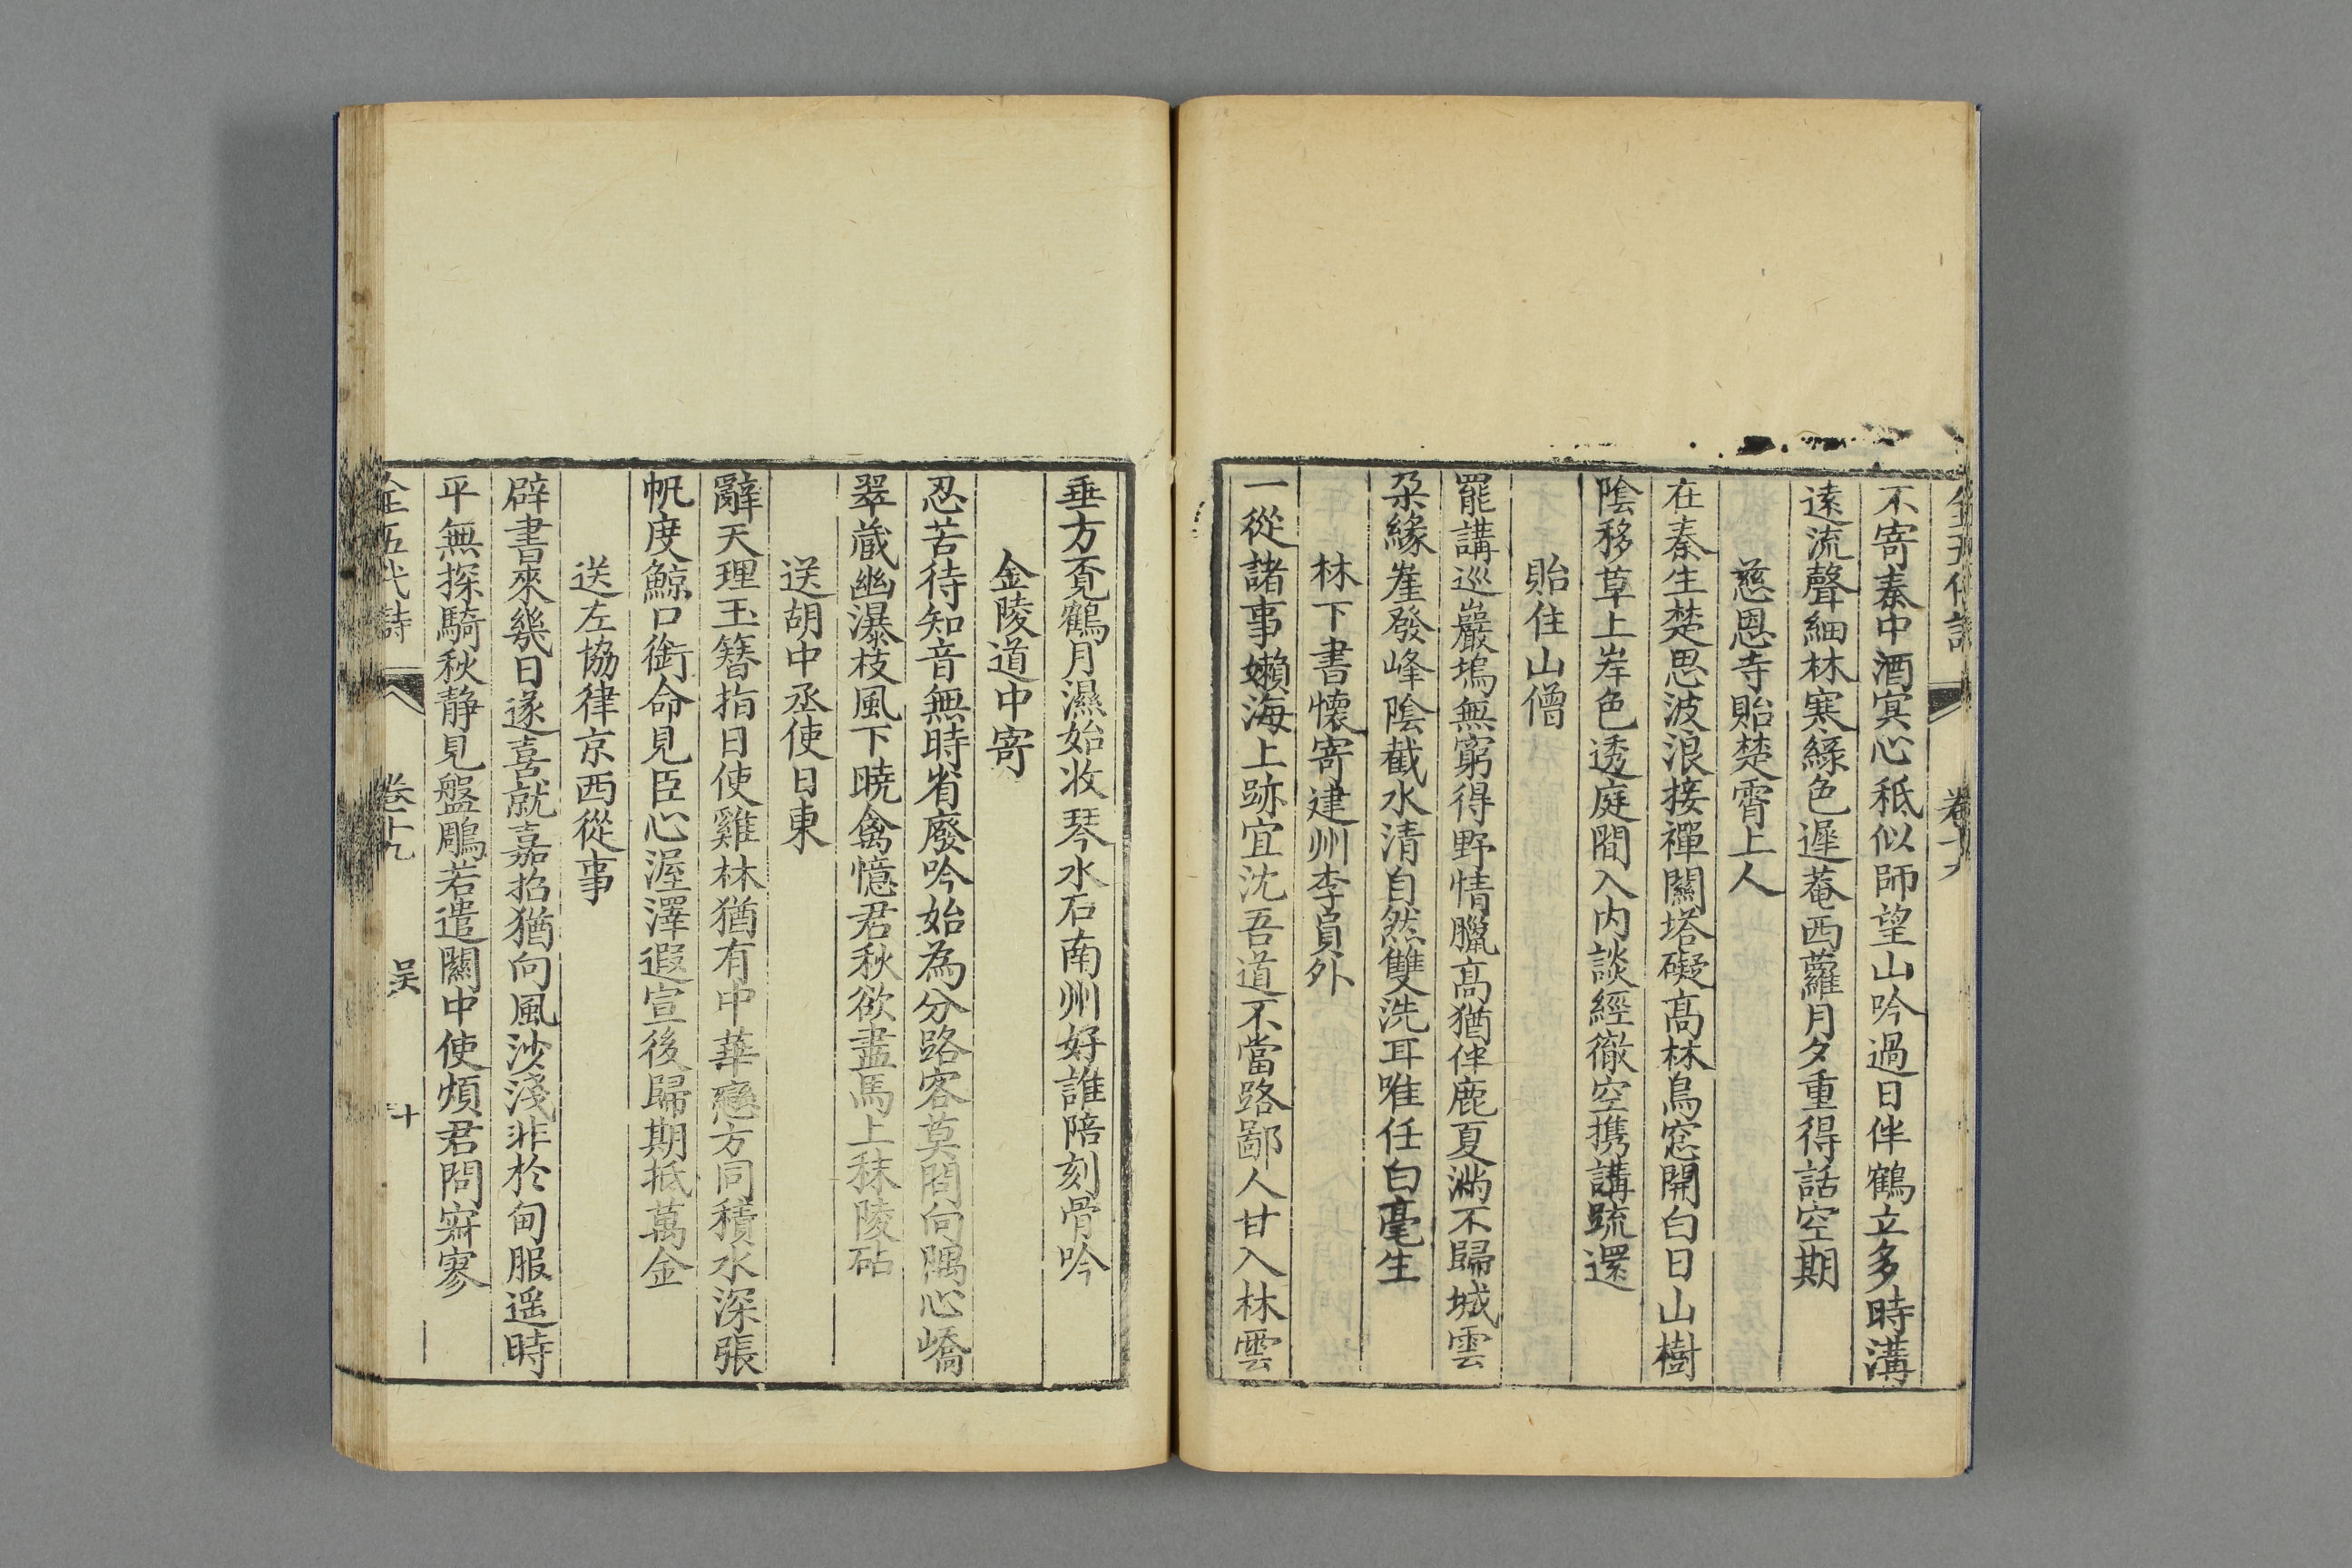 不寄秦中酒㝠心秪似師望山吟過日伴鶴立多時溝
遠流聲細林寒綠色遲菴西蘿月夕重得話空期
慈恩寺貽楚霄上人
在秦生楚思波浪接禪關塔礙高林鳥窓開白日山樹
陰移草上岸色透庭間入内談經徹空携講䟽還
貽住山僧
罷講巡巖塢無窮得野情臘高猶伴鹿夏滿不歸城雲
朶緣崖發峰陰截水清自然雙洗耳唯任白毫生
林下書懷寄建州李員外
一從諸事嬾海上跡宜沈吾道不當路鄙人甘入林雲
垂方覓鶴月濕始收琴水石南州好誰陪刻骨吟
金陵道中寄
忍苦待知音無時省廢吟始為分路客莫問向隅心嶠
翠藏幽瀑枝風下曉禽憶君秋欲盡馬上秣陵砧
送胡中丞使日東
辭天理玉簪指日使雞林猶有中華戀方同積水深張
帆度鯨口銜命見臣心渥澤遐宣後歸期抵萬金
送左協律京西從事
辟書來幾日遂喜就嘉招猶向風沙淺非於甸服遥時
平無探騎秋静見盤鵰若遣關中使煩君問寂寥
全五代詩 卷十九 吴 十